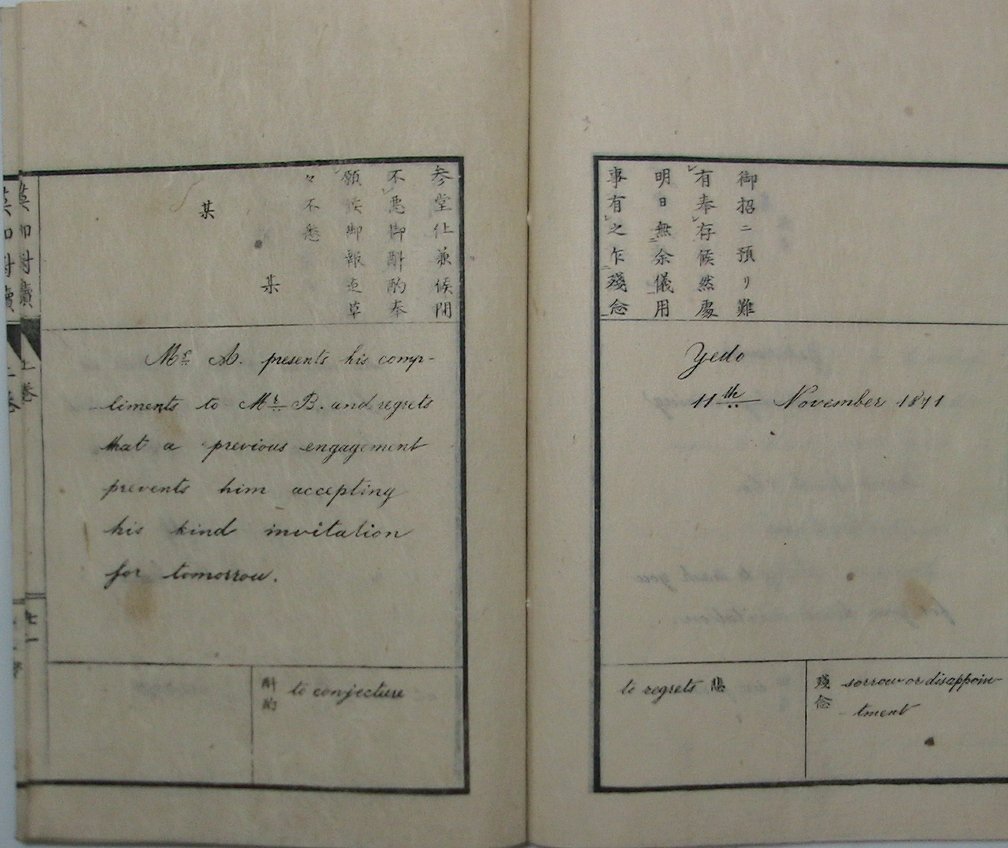 御招ニ預リ難
有奉存候然處
明日無余儀用
事有之乍殘念
Yedo
11th November 1871
殘念 sorrow or disappoin-
tment
to regrets
参堂仕兼候間
不悪御斟酌奉
願候御報迄草
々不悉
某
某
Mr. A. presents his comp-
liments to Mr. B. and regrets
that a previous engagement
prevents him accepting
his kind invitation
for tomorrow.
斟酌 to conjecture
英和對牘
上巻